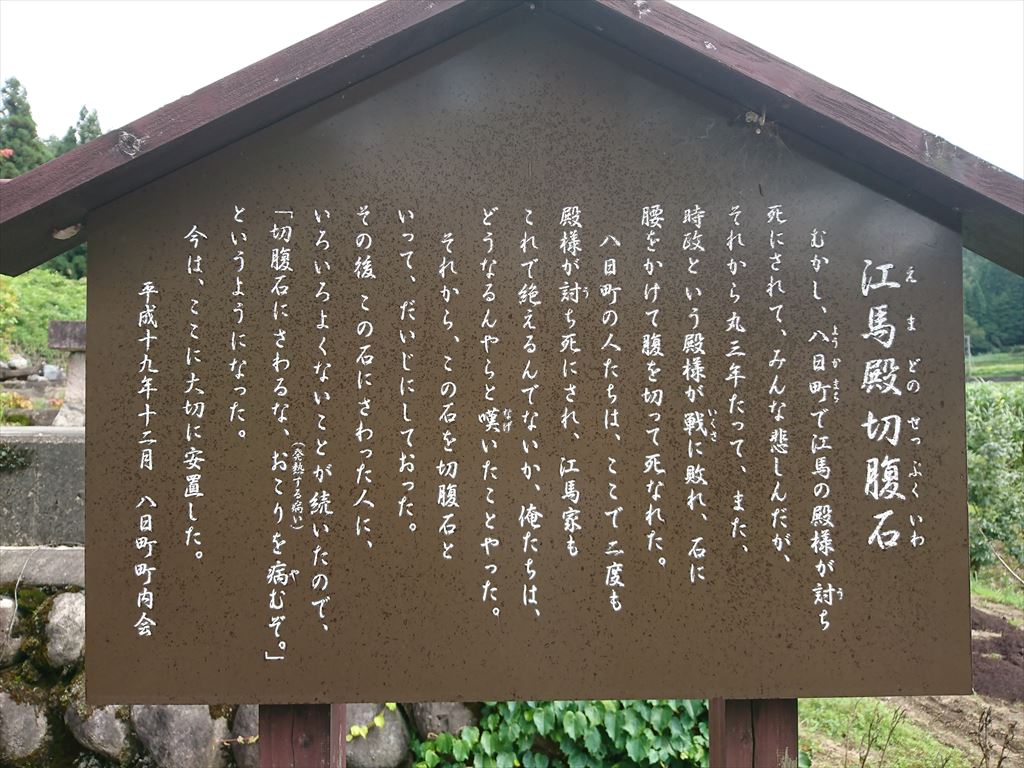 江馬殿切腹石
えまどのせっぷくいわ
むかし、八日町で江馬の殿様が討ち
死にされて、みんな悲しんだが、
それから丸三年たって、また、
時政という殿様が戦に敗れ、石に
腰をかけて腹を切って死なれた。
八日町の人たちは、ここで二度も
殿様が討ち死にされ、江馬家も
これで絶えるんでないか、俺たちは、
どうなるんやらと嘆いたことやった。
それから、この石を切腹石と
いって、だいじにしておった。
その後 この石にさわった人に、
いろいろよくないことが続いたので、
「切腹石にさわるな、おこりを病むぞ。」
(発熱する病い)
というようになった。
今は、ここに大切に安置した。
平成十九年十二月 八日町町内会